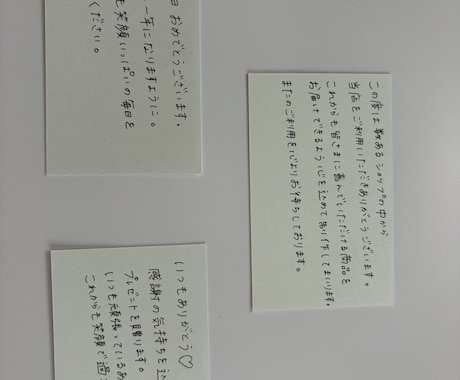 この度は数あるショップの中から
当店をご利用いただきありがとうございます。
これからも皆さまに喜んでいただける商品を
お届けできるよう心を込めて制作してまいります。
またのご利用を心よりお待ちしております。
日 おめでとうございます。
一年になりますように。
も笑顔いっぱいの毎日を
ください。
いつもありがとう♡
感謝の気持ちを込
プレゼントを贈ります。
いつも頑張っているあ
これからも笑顔で過